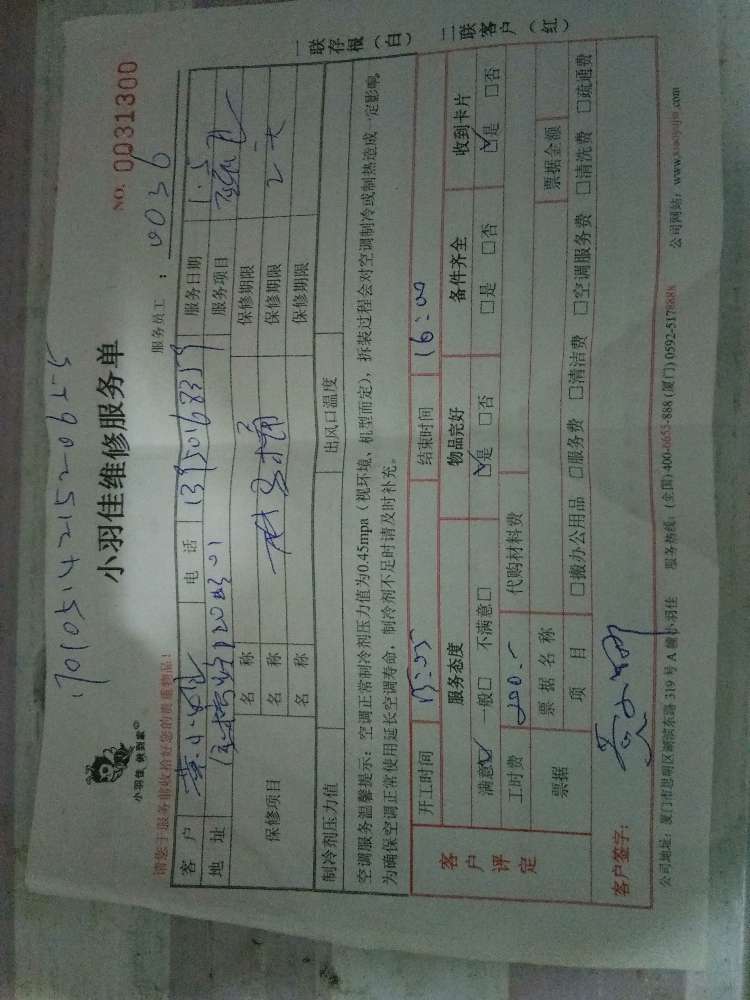 17010514215206255
NO. 0031300
小羽佳 快到家
小羽佳维修服务单
服务员工：0036
请您于服务前收拾好您的贵重物品！
客户 电话 服务日期 1.5
地址 服务项目
保修项目 名称 保修期限
名称 保修期限 2天
名称 保修期限
制冷剂压力值 出风口温度
空调服务温馨提示：空调正常制冷剂压力值为0.45mpa（视环境、机型而定），拆装过程会对空调制冷或制热造成一定影响，
为确保空调正常使用延长空调寿命，制冷剂不足时请及时补充。
客户评定
开工时间 15:05 结束时间 16:00
服务态度 物品完好 备件齐全 收到卡片
满意☑ 一般□ 不满意□ ☑是 □否 □是 □否 ☑是 □否
工时费 200.- 代购材料费
票据 票据名称 票据金额
项目 □搬办公用品 □服务费 □清洁费 □空调服务费 □清洗费 □疏通费
客户签字：
公司地址：厦门市思明区湖滨东路319号A幢小羽佳 服务热线：(全国)400-6655-888 (厦门)0592-5178888 公司网站：www.xiaoyujia.com
一联存根（白） 二联客户（红）